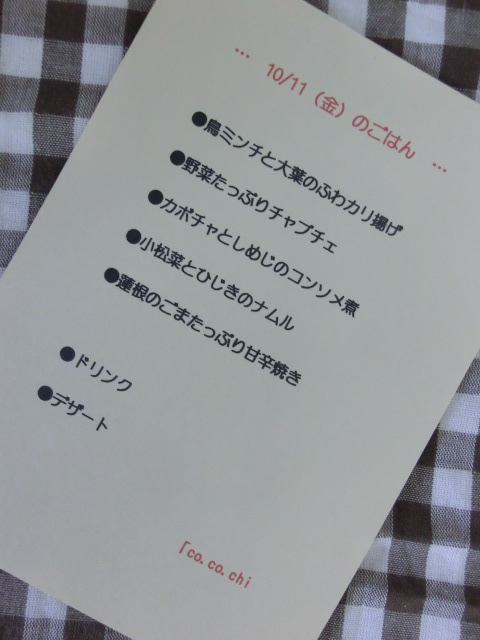 … 10/11（金）のごはん …
●鳥ミンチと大葉のふわカリ揚げ
●野菜たっぷりチャプチェ
●カボチャとしめじのコンソメ煮
●小松菜とひじきのナムル
●蓮根のごまたっぷり甘辛焼き
●ドリンク
●デザート
「co.co.chi